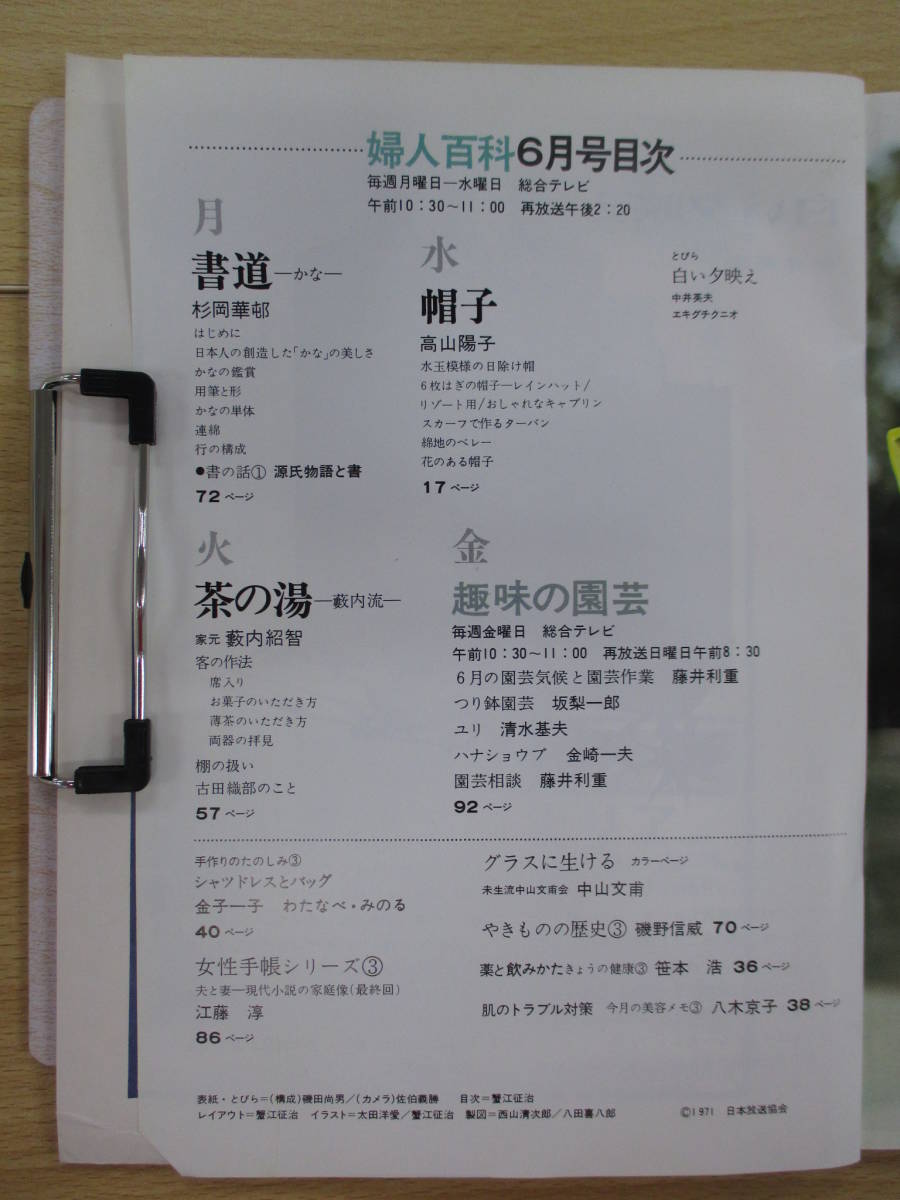 婦人百科6月号目次
毎週月曜日―水曜日　総合テレビ
午前10:30～11:00　再放送午後2:20
月
書道―かな―
杉岡華邨
はじめに
日本人の創造した「かな」の美しさ
かなの鑑賞
用筆と形
かなの単体
連綿
行の構成
●書の話① 源氏物語と書
72ページ
水
帽子
高山陽子
水玉模様の日除け帽
6枚はぎの帽子―レインハット/
リゾート用/おしゃれなキャプリン
スカーフで作るターバン
綿地のベレー
花のある帽子
17ページ
とびら
白い夕映え
中井英夫
エキグチクニオ
火
茶の湯―藪内流―
家元 藪内紹智
客の作法
席入り
お菓子のいただき方
薄茶のいただき方
両器の拝見
棚の扱い
古田織部のこと
57ページ
金
趣味の園芸
毎週金曜日　総合テレビ
午前10:30～11:00　再放送日曜日午前8:30
6月の園芸気候と園芸作業　藤井利重
つり鉢園芸　坂梨一郎
ユリ　清水基夫
ハナショウブ　金崎一夫
園芸相談　藤井利重
92ページ
手作りのたのしみ③
シャツドレスとバッグ
金子一子　わたなべ・みのる
40ページ
女性手帳シリーズ③
夫と妻―現代小説の家庭像(最終回)
江藤　淳
86ページ
グラスに生ける　カラーページ
未生流中山文甫会　中山文甫
やきものの歴史③ 磯野信威 70ページ
薬と飲みかた きょうの健康③ 笹本　浩 36ページ
肌のトラブル対策　今月の美容メモ③ 八木京子 38ページ
表紙・とびら=(構成)磯田尚男/(カメラ)佐伯義勝　目次=蟹江征治
レイアウト=蟹江征治　イラスト=太田洋愛/蟹江征治　製図=西山清次郎/八田喜八郎
©1971　日本放送協会